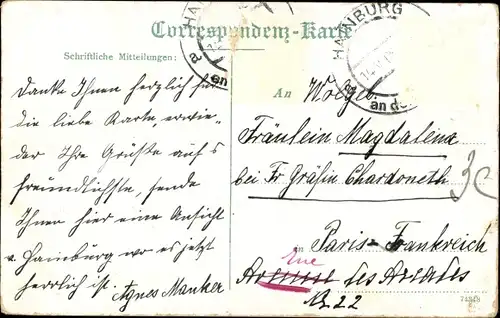 Correspondenz-Karte
HAINBURG
HAINBURG
an d
Schriftliche Mitteilungen:
An Wolgeb.
Danke Ihnen herzlich für
die liebe Karte, erwie-
der Ihre Grüße auf's
freundlichste, sende
Ihnen hier eine Ansicht
v. Hainburg wo es jetzt
herrlich ist. Agnes Manker
Fräulein Magdalena
bei Fr Gräfin Chardoneth
in Paris-Frankreich
Rue
des
№ 22
3c
74848